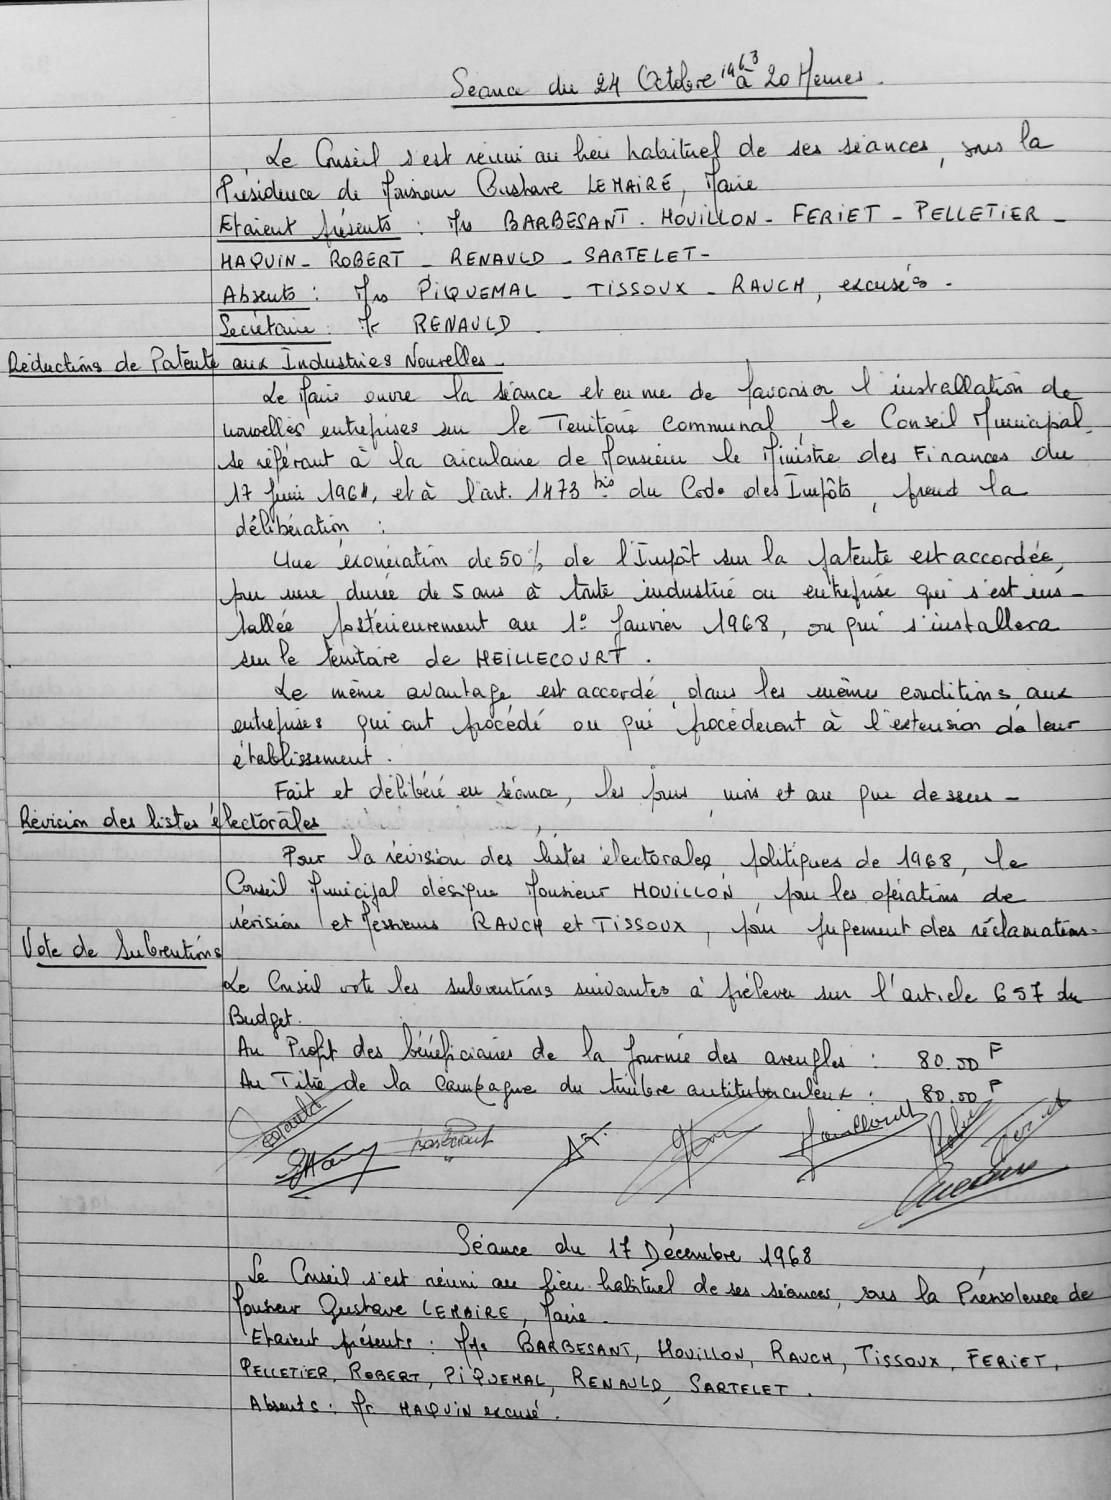 Séance du 24 Octobre 1968 à 20 Heures.
Le Conseil s'est réuni au lieu habituel de ses séances, sous la
Présidence de Monsieur Gustave LEMAIRE, Maire
Etaient présents : Mrs BARBESANT - HOUILLON - FERIET - PELLETIER -
HAQUIN - ROBERT - RENAULD - SARTELET -
Absents : Mrs PIQUEMAL - TISSOUX - RAUCH, excusés.
Secrétaire : Mr RENAULD.
Réductions de Patente aux Industries Nouvelles -
Le Maire ouvre la séance et en vue de favoriser l'installation de
nouvelles entreprises sur le Territoire Communal, le Conseil Municipal,
se référant à la circulaire de Monsieur le Ministre des Finances du
17 Juin 1964, et à l'art. 1473 bis du Code des Impôts, prend la
délibération :
Une éxonération de 50% de l'Impôt sur la patente est accordée,
pour une durée de 5 ans à toute industrie ou entreprise qui s'est ins-
tallée postérieurement au 1º Janvier 1968, ou qui s'installera
sur le territoire de HEILLECOURT.
Le même avantage est accordé dans les mêmes conditions aux
entreprises qui ont procédé ou qui procèderont à l'extension de leur
établissement.
Fait et délibéré en séance, les jours, mois et an que dessus -
Révision des listes électorales
Pour la révision des listes électorales politiques de 1968, le
Conseil Municipal désigne Monsieur HOUILLON, pour les opérations de
révision et Messieurs RAUCH et TISSOUX, pour jugement des réclamations -
Vote de Subventions
Le Conseil vote les subventions suivantes à prélever sur l'article 657 du
Budget.
Au Profit des bénéficiaires de la Journée des aveugles : 80.00 F
Au Titre de la Campagne du timbre antituberculeux : 80.00 F
Renauld
Barbesant
Houillon
Feriet
Séance du 17 Décembre 1968
Le Conseil s'est réuni au lieu habituel de ses séances, sous la Présidence de
Monsieur Gustave LEMAIRE, Maire.
Etaient présents : MM. BARBESANT, HOUILLON, RAUCH, TISSOUX, FERIET,
PELLETIER, ROBERT, PIQUEMAL, RENAULD, SARTELET.
Absents : Mr HAQUIN excusé.